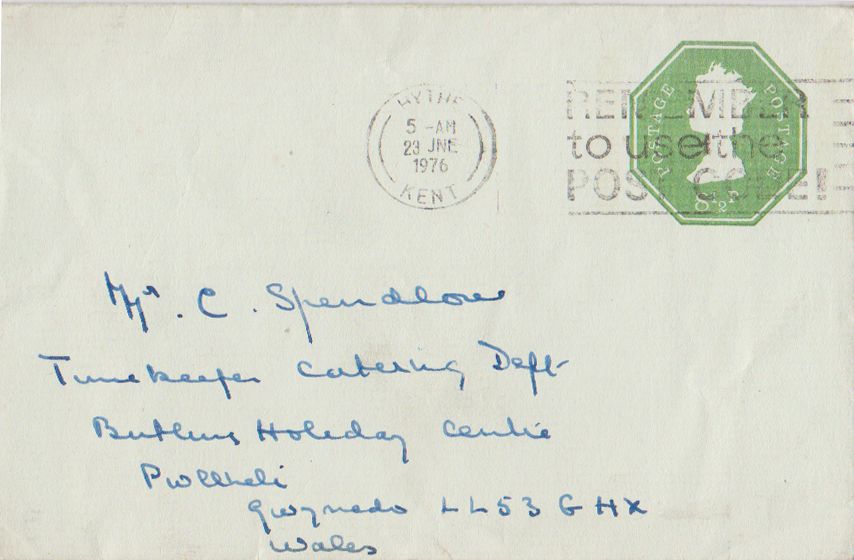 HYTHE
5 -AM
23 JNE
1976
KENT
REMEMBER
to use the
POST CODE!
POSTAGE POSTAGE
8½P
Mr. C. Spendlove
Timekeeper Catering Dept
Butlins Holiday Centre
Pwllheli
Gwynedd LL53 6HX
Wales